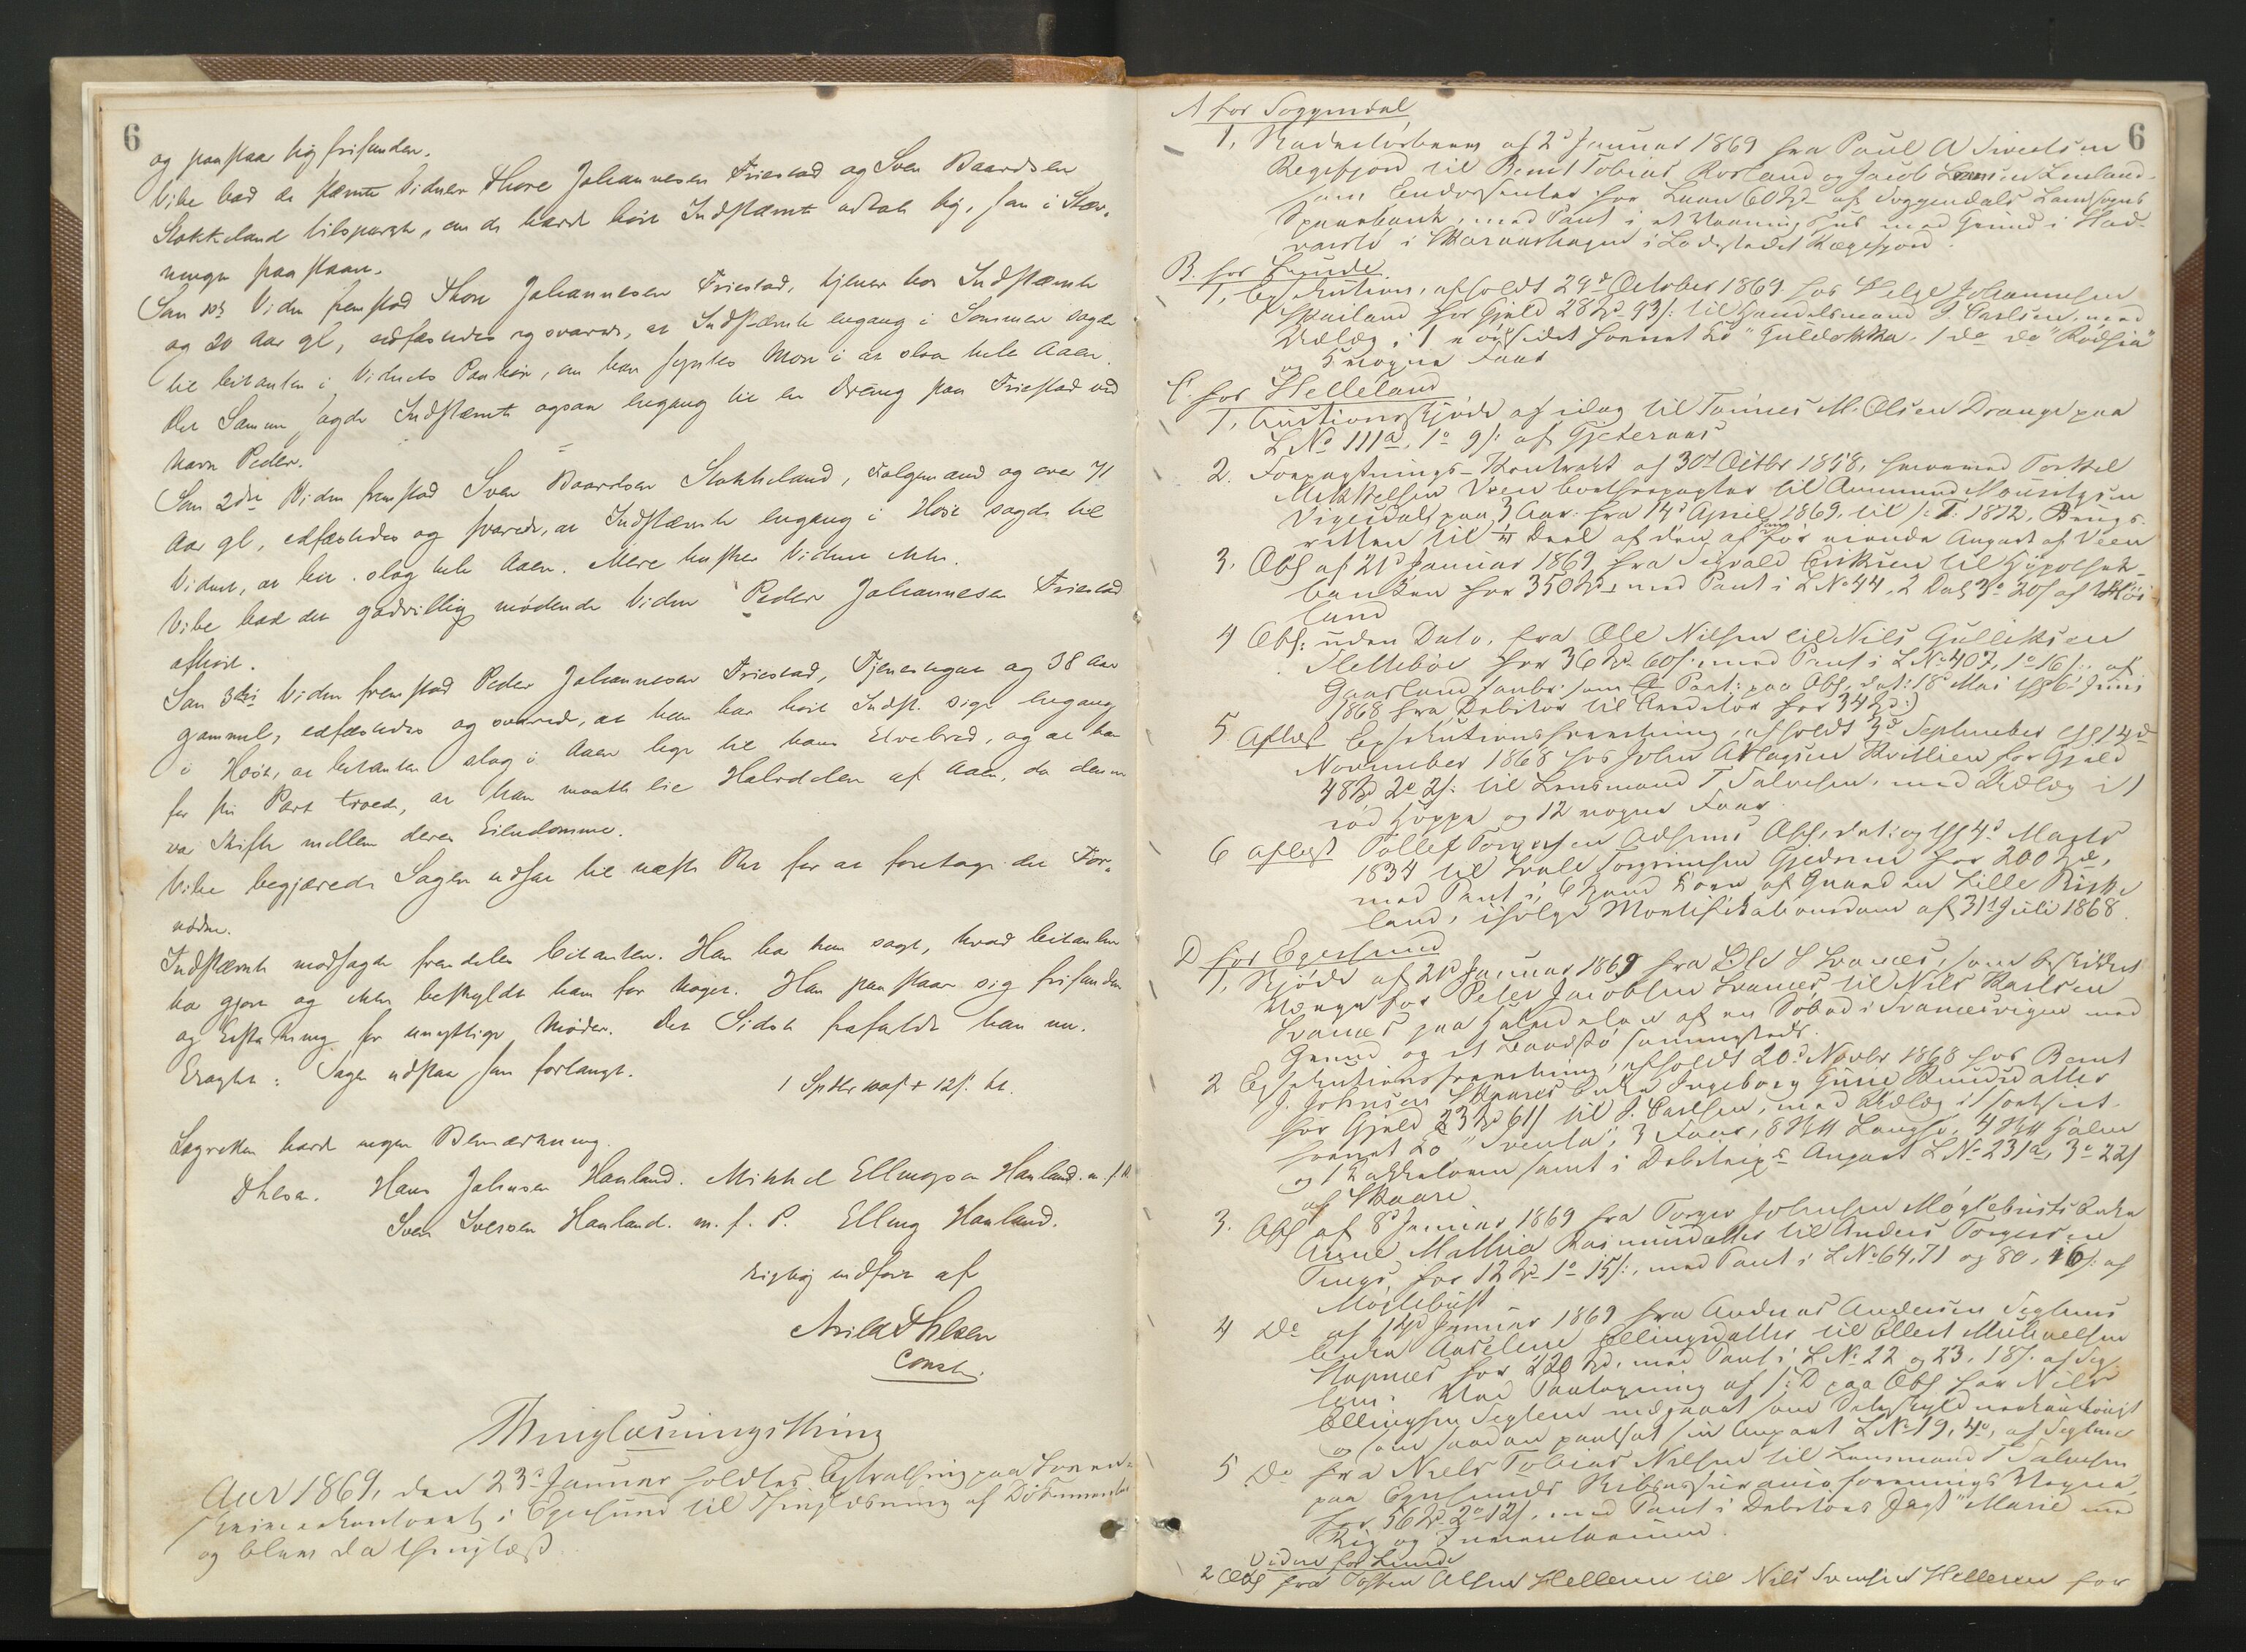 6
og paastaar sig frifunden.
Vibe bad de stævnte Vidner Thore Johannesen Friestad og Sven Baardsen
Stokkeland tilspurgte, om de havde hørt Indstævnte udtale sig, som i Stæv-
ningen paastaar.
Som 1ste Vidne fremstod Thore Johannesen Friestad, tjener hos Indstævnte
og 20 Aar gl, edfæstedes og svarede, at Indstævnte engang i Sommer sagde
til Citanten i Vidnets Paahør, om han syntes Mon i at slaa hele Aaen.
Det Samme sagde Indstævnte ogsaa engang til en Dreng paa Friestad ved
Navn Peder.
Som 2det Vidne fremstod Sven Baardsen Stokkeland, Folgemand og over 71
Aar gl, edfæstedes og svarede, at Indstævnte engang i Høst sagde til
Vidnet, at han slog hele Aaen. Mere husker Vidnet ikke.
Vibe bad det godvillig mødende Vidne Peder Johannesen Friestad
afhørt.
Som 3die Vidne fremstod Peder Johannesen Friestad, Tjenestegut og 38 Aar
gammel, edfæstedes og svarede, at han har hørt Indst. sige engang
i Høst, at Citanten slog i Aaen lige til hans Elvebred, og at han
for sin Part troede, at han maatte eie Halvdelen af Aaen, da denne
var Skifte mellem deres Eiendomme.
Vibe begjærede Sagen udsat til næste Ret for at foretage det For-
nødne.
Indstævnte modsagde fremdeles Citanten. Han har kun sagt, hvad Citanten
har gjort og ikke beskyldt ham for Noget. Han paastaar sig frifunden
og Erstatning for unyttige Møder. Det Sidste frafaldt han nu.
Eragtet: Sagen udstaar som forlangt.
1 Spd
Lagretten havde ingen Bemærkning.
Thesen. Hans Johnsen Hauland. Mikkel Ellingsen Hauland. m. f. P.
Sven Svensen Hauland. m. f. P. Elling Hauland.
rigtig udført af
Arild Thesen
const.
Thinglæsningsthing
Aar 1869, den 23de Januar holdtes Extrathing paa Soren-
skriverkontoret i Egersund til Thinglæsning af Dokumenter
og blev da thinglæst
6
A for Soggendal
1, Kadastørbrev af 2d Januar 1869 fra Paul A Sivertsen
Regefjord til Bernt Tobias Rosland og Jacob Larsen Linland
som Endossenter for Laan 60 Spd af Soggendals Landsogns
Sparebank, med Pant i et Vaaningshus med Grund i
i Ladestedet Rægefjord.
B. for Lunde
1, Exsekution, afholdt 29d October 1869 hos Helge Johannesen
Skarland for Gjæld 28 Spd 93 s. til Handelsmand J. Carlsen, med
Udlæg i 1 hornet Ko "Guldokka", 1 do do "Rødsia"
og 5 vogne Faar
C. for Helleland
1, Auctionsskjøde af idag til Tønnes M. Olsen Drange paa
L No 111a, 1o 9 s. af Gjeteraas
2. Forpagtnings-Kontrakt af 30d Octbr 1858, hvorved Torkel
Mikkelsen Veen bortforpagter til Aanmund Mauritzsen
Vigesdal paa 3 Aar fra 14d April 1869 til s. T. 1872, Brugs-
retten til 1/4 Deel af den af ham for eiende Anpart af Veen
3. Obl af 21d Januar 1869 fra Sigvald Eriksen til Hypothek-
banken for 350 Spd, med Pant i L No 44, 2 Dal 3o 20 s af
land
4 Obl: uden Dato, fra Ole Nilsen til Nils Gulliksen
Slettebøe for 36 Spd 60 s, med Pant i L No 407, 1o 16 s. af
Gaasland Obl, dat: 18d Mai 6d Juni
1868 fra Debitor til Creditor for 34 Spd)
5 Aflæst Exsekutionsforretning, afholdt 3d September 14d
November 1868 hos John Aslagsen Kvitlien for Gjæld
48 Spd 2o 2 s: til Lensmand T Salvesen, med Udlæg i 1
rød Hoppe og 12 vogne Faar.
6 aflæst Tollef Torgersen Obl, dat: og 4d Marts
1834 til Torgrimsen Gjedrem for 200 Spd,
med Pant i af Gaarden Lille Riske
land, ifølge Mortifikationsdom af 31d Juli 1868.
D for Egersund
1, Skjøde af 21d Januar 1869 fra Ole S Svanes, som beskikket
Værge for Peter Jacobsen Svanes, til Nils Karlsen
Svanes paa Halvdelen af en Søbod i Svanesvigen med
Grund og et Baadstø sammesteds.
2 Exsekutionsforretning, afholdt 20d Novbr 1868 hos Bernt
J. Johnsen Skaares Enke Ingeborg Gurie Knudsdatter
for Gjæld 23 Spd 61 s til J. Carlsen, med Udlæg i 1 sortsidet
hornet Ko "Svenla", 3 Faar, 8 Langhø, 4 Halm
og 1 Kakkelovn samt i Debitrixs Anpart L No 231a, 3o 22 s
af Skaare
3. Obl af 8d Januar 1869 fra Torger Johnsen Møglebusts Enke
Anne Mathia Rasmusdatter til Anders Torgersen
Tengs, for 12 Spd 1o 15 s:, med Pant i L No 64, 71 og 80, 16 s: af
Møglebust
4 Do af 14d Januar 1869 fra Andreas Andersen Seglems
Enke Anselene Ellingsdatter til Ellert Mikaelsen
Hapnes for 220 Spd, med Pant i L No 22 og 23, 18 s: af Seg-
lem. Med Paategning af s. D paa Obl fra Nils
Ellingsen Seglem vedgaaet som Selvskyldnerkautionist
og som saadan pantsat sin Anpart L No 19, 4o, af Seglem
5 Do fra Niels Tobias Nilsen til Lensmand T Salvesen
paa Egersunds Skibsassuranceforenings Vegne,
for 56 Spd 2o 12 s, med Pant i Debitors Jagt "Marie" med
Rig og Inventarium.
Videre for Lunde
2 Obl fra Torsten Olsen Helleren til Nils Svensen Helleren for